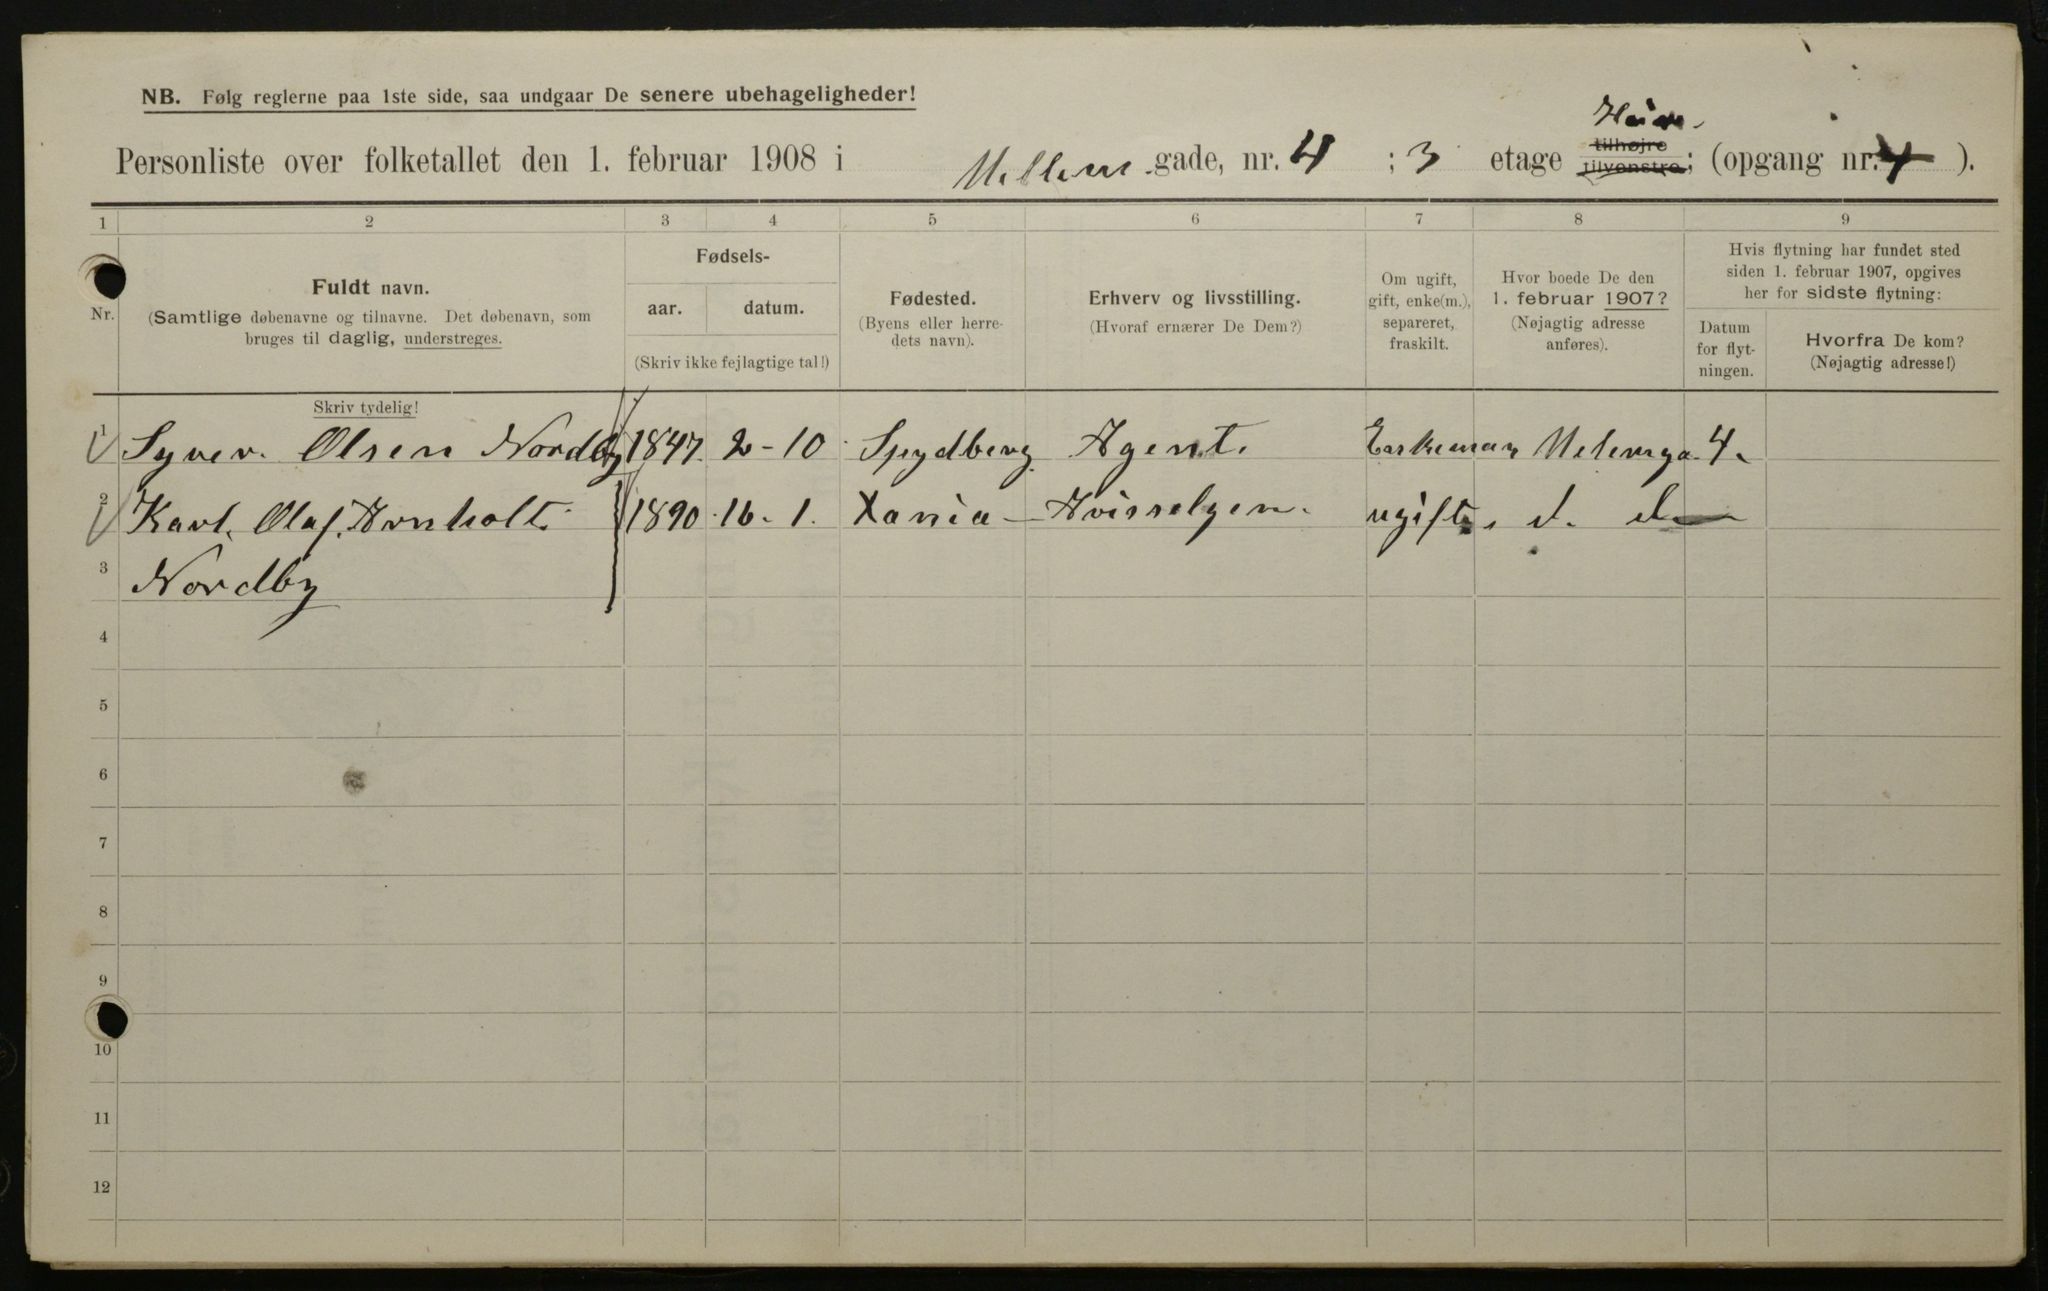 NB. Følg reglerne paa 1ste side, saa undgaar De senere ubehageligheder!
Personliste over folketallet den 1. februar 1908 i Mellem gade, nr. 4 ; 3 etage tilhøjre tilvenstre; (opgang nr. 4 ).
1 2 3 4 5 6 7 8 9
Nr.
Fuldt navn.
(Samtlige døbenavne og tilnavne. Det døbenavn, som
bruges til daglig, understreges.
Fødsels-
aar. datum.
(Skriv ikke fejlagtige tal!)
Fødested.
(Byens eller herre-
dets navn).
Erhverv og livsstilling.
(Hvoraf ernærer De Dem?)
Om ugift,
gift, enke(m.),
separeret,
fraskilt.
Hvor boede De den
1. februar 1907?
(Nøjagtig adresse
anføres).
Hvis flytning har fundet sted
siden 1. februar 1907, opgives
her for sidste flytning:
Datum
for flyt-
ningen.
Hvorfra De kom?
(Nøjagtig adresse!)
Skriv tydelig!
1 Syver. Olsen Nordby 1847 2-10 Spydberg Agent. Enkeman Melemga. 4.
2 Karl. Olaf. Arnholt 1890 16-1. Xania - Avisselgen. ugift. d. d
3 Nordby
4
5
6
7
8
9
10
11
12